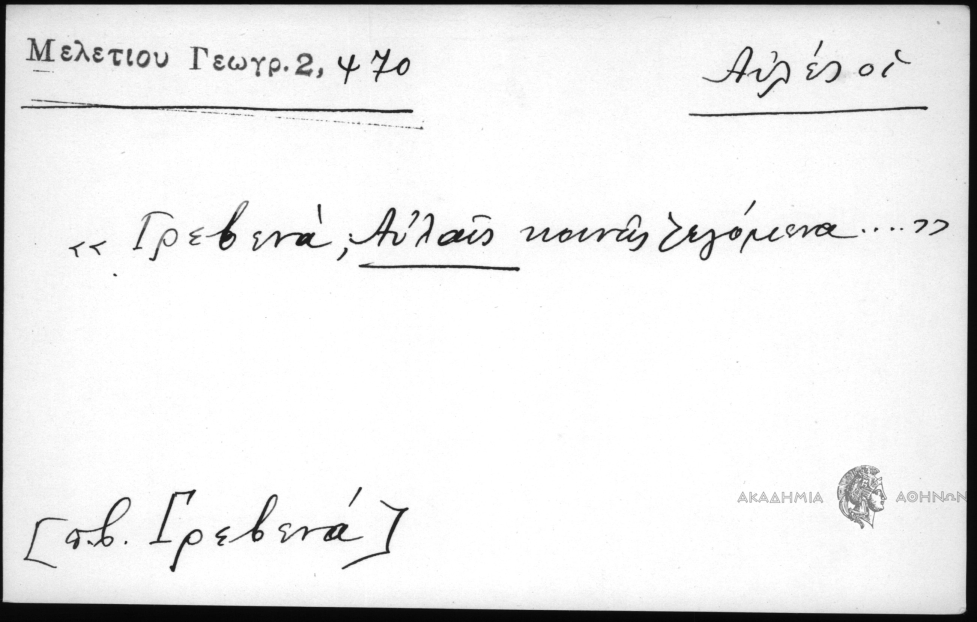 Μελετιου Γεωγρ. 2, 470
Αὐλές οἱ
«Γρεβενά, Αὐλαῖς κοινῶς λεγόμενα....»
[π.β. Γρεβενά]
ΑΚΑΔΗΜΙΑ ΑΘΗΝΩΝ